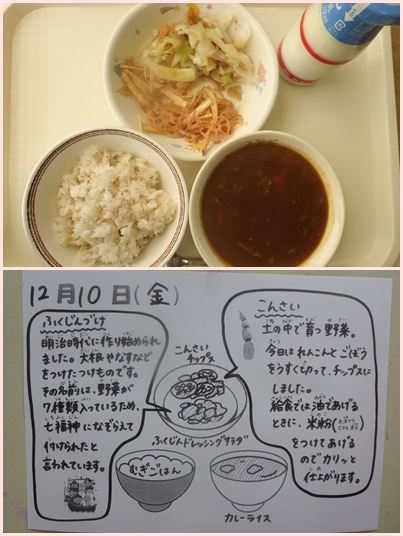 12月10日(金)
ふくじんづけ
明治時代に作り始められ
ました。大根やなすなど
をつけたつけものです。
その名前は、野菜が
7種類入っているため、
七福神になぞらえて
付けられたと
言われています。
こんさい
チップス
ふくじんドレッシングサラダ
むぎごはん
カレーライス
こんさい
土の中で育つ野菜。
今日はれんこんとごぼう
をうすく切って、チップスに
しました。
給食では油であげる
ときに、米粉
をつけてあげる
のでカリッと
仕上がります。